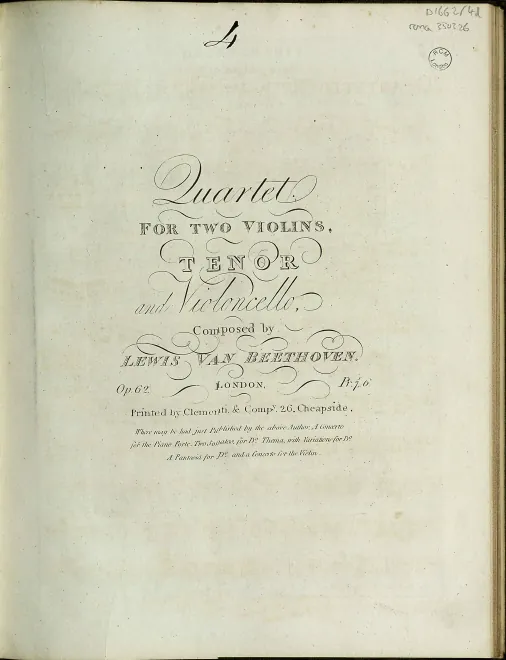 D1662/4d
4
Quartet
FOR TWO VIOLINS,
TENOR
and Violoncello,
Composed by
LEWIS VAN BEETHOVEN.
Op. 62. LONDON, Pr.
Printed by Clementi, & Compy. 26, Cheapside,
Where may be had just Published by the above Author, A Concerto
for the Piano Forte, Two Sonatas, for Do. Thema, with Variations for Do.
A Fantasia for Do. and a Concerto for the Violin.